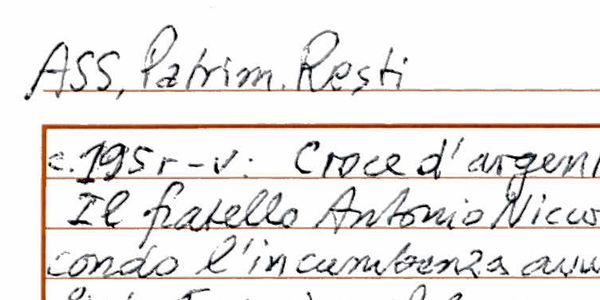 ASS, Patrim. Resti
c. 195 r-v: Croce d'argent
Il fratello Antonio Nicco
condo l'incumbenza avu